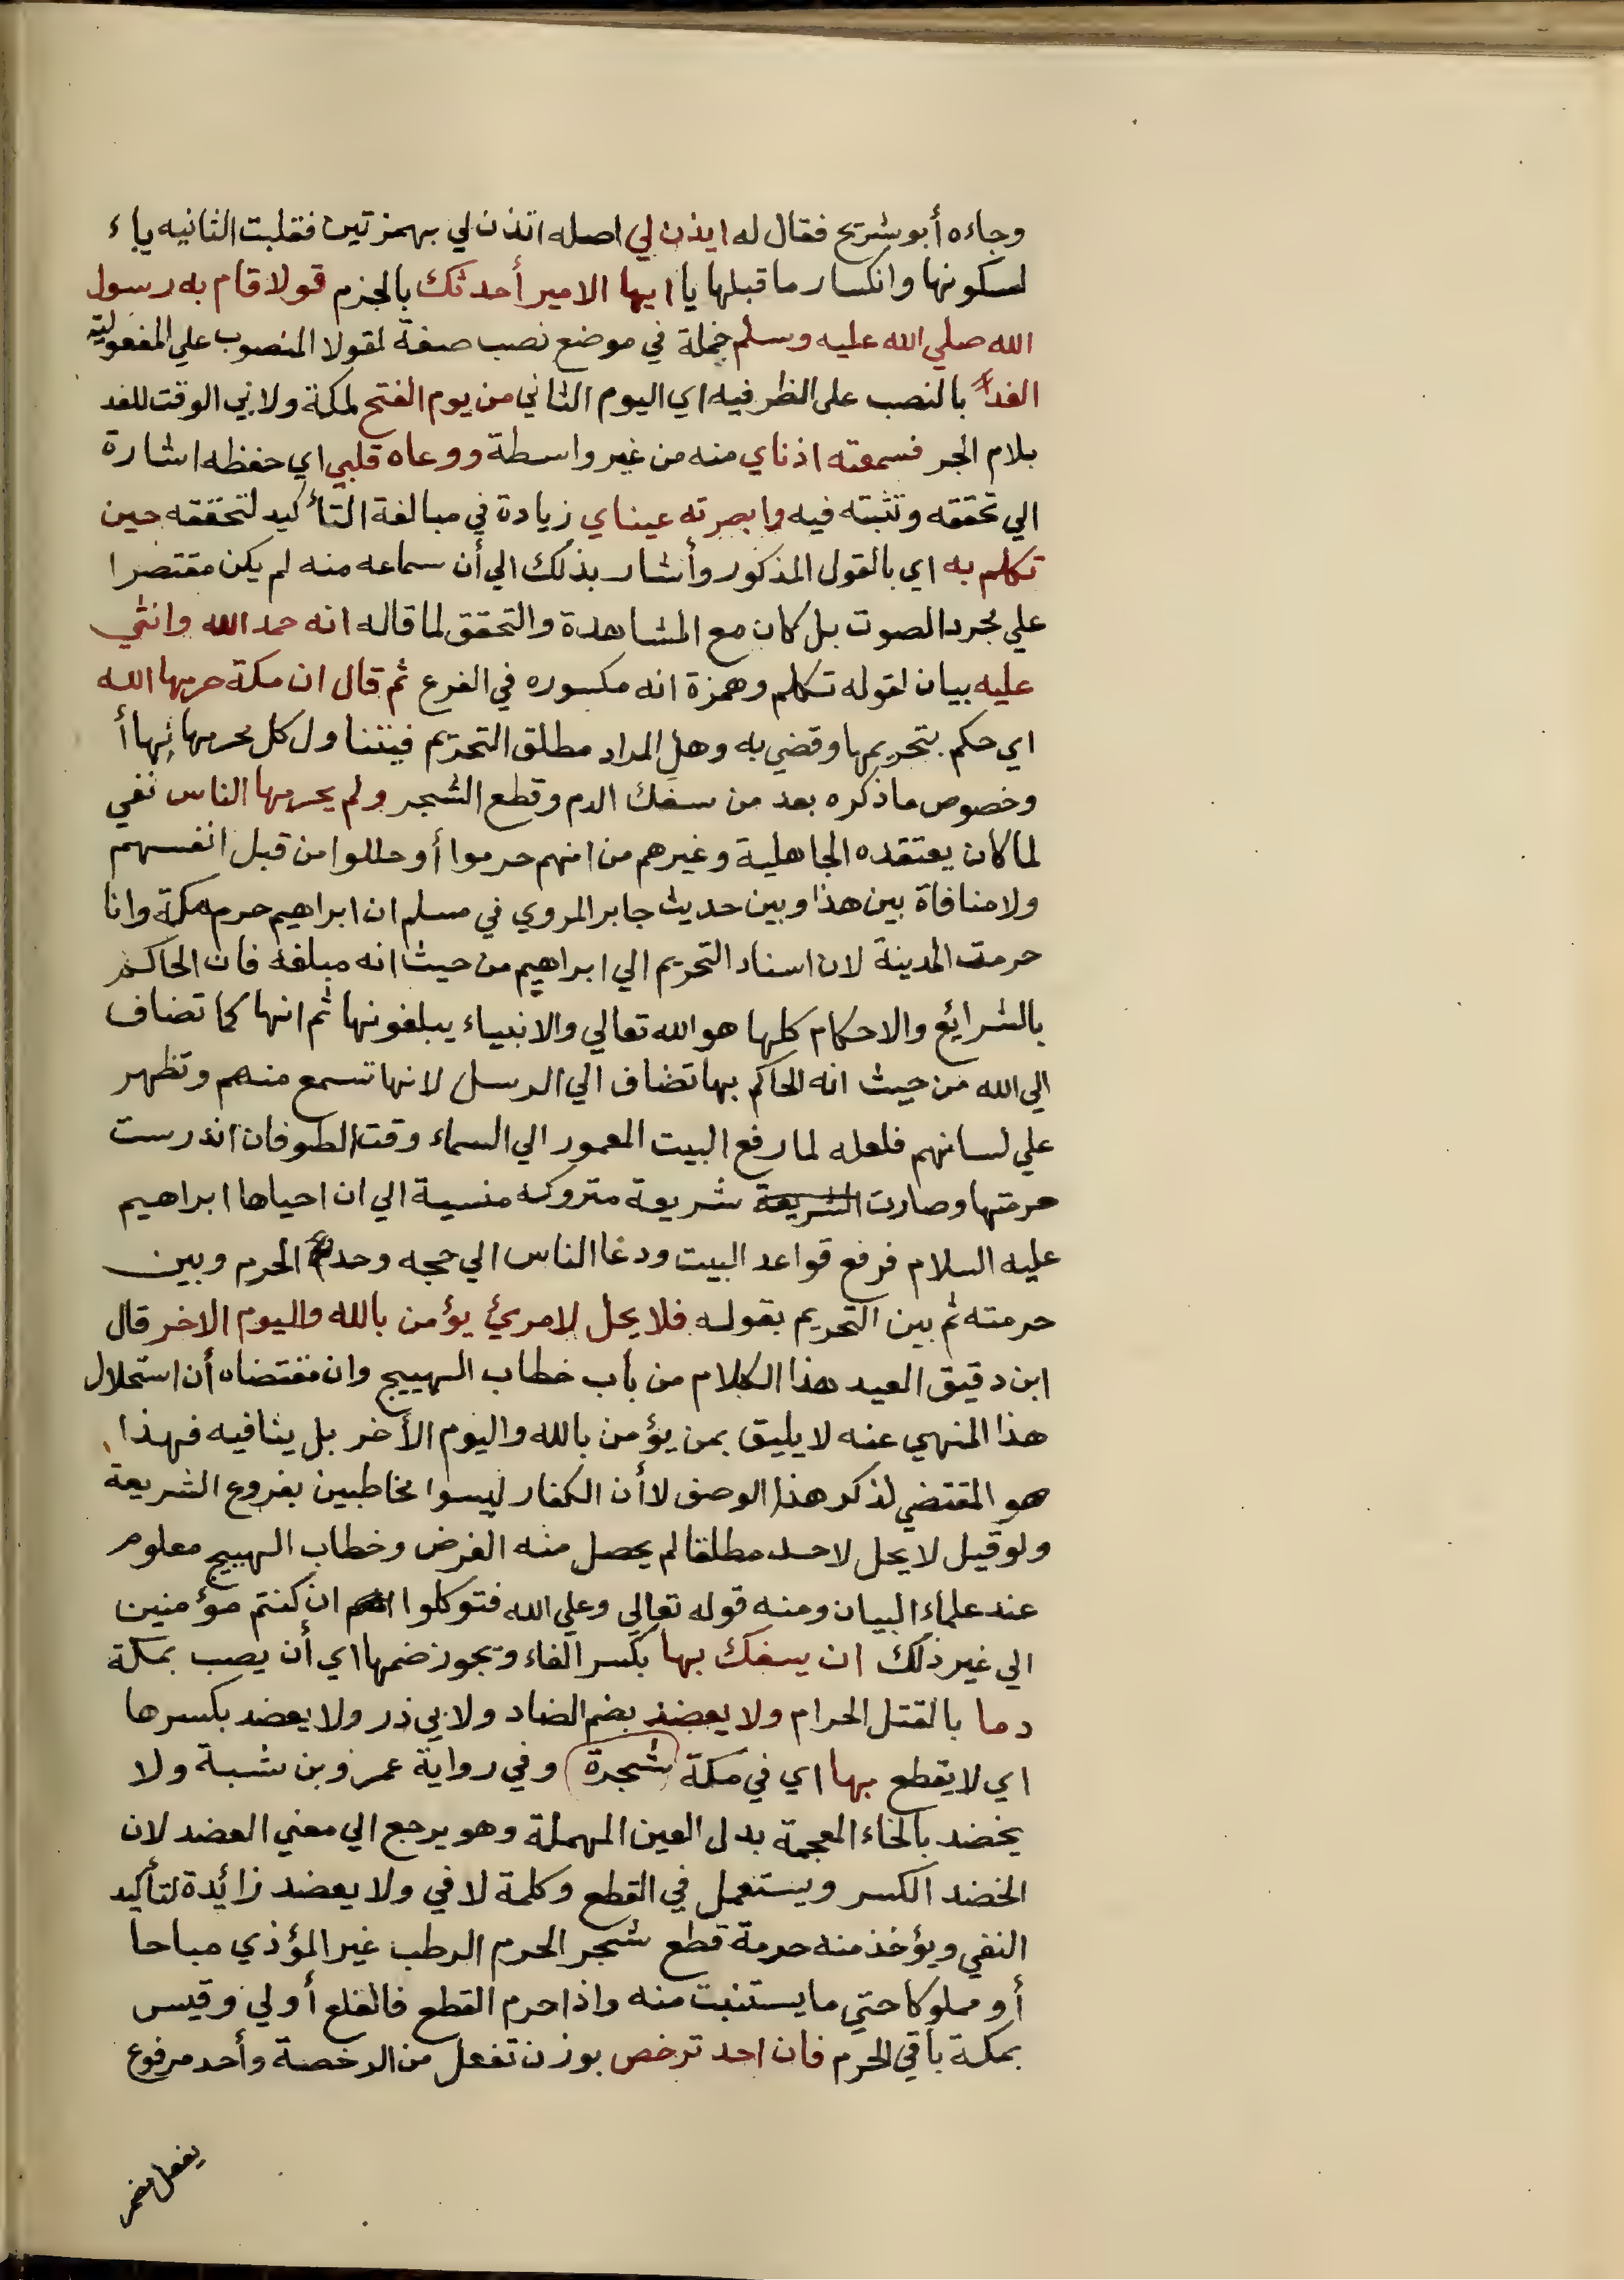 وجاءه أبو شريح فقال له ايذن لي اصله ائذن لي بهمزتين فقلبت الثانيه ياء
لسكونها وانكسار ما قبلها يا ايها الامير أحدثك بالجزم قولا قام به رسول
الله صلي الله عليه وسلم جملة في موضع نصب صفة لقولا المنصوب علي المفعولية
الغد بالنصب على الظرفيه اي اليوم الثاني من يوم الفتح لمكة ولابي الوقت للغد
بلام الجر فسمعته اذناي منه من غير واسطة ووعاه قلبي اي حفظه اشارة
الي تحققه وتثبته فيه وابصرته عيناي زيادة في مبالغة التأكيد لتحققه حين
تكلم به اي بالقول المذكور وأشار بذلك الي أن سماعه منه لم يكن مقتصرا
علي مجرد الصوت بل كان مع المشاهدة والتحقق لما قاله انه حمد الله واثني
عليه بيان لقوله تكلم وهمزة انه مكسوره في الفرع ثم قال ان مكة حرمها الله
اي حكم بتحريمها وقضي به وهل المراد مطلق التحريم فيتناول كل محرماتها أ
وخصوص ما ذكره بعد من سفك الدم وقطع الشجر ولم يحرمها الناس نفي
لما كان يعتقده الجاهلية وغيرهم من انهم حرموا أو حللوا من قبل انفسهم
ولا منافاة بين هذا وبين حديث جابر المروي في مسلم ان ابراهيم حرم مكة وانا
حرمت المدينة لان اسناد التحريم الي ابراهيم من حيث انه مبلغه فان الحاكم
بالشرايع والاحكام كلها هو الله تعالي والانبياء يبلغونها ثم انها كما تضاف
الي الله من حيث انه الحاكم بها تضاف الي الرسل لانها تسمع منهم وتظهر
علي لسانهم فلعله لما رفع البيت المعمور الي السماء وقت الطوفان اندرست
حرمتها وصارت الشريعة شريعة متروكه منسية الي ان احياها ابراهيم
عليه السلام فرفع قواعد البيت ودعا الناس الي حجه وحد الحرم وبين
حرمته ثم بين التحريم بقوله فلا يحل لامرئ يؤمن بالله واليوم الاخر قال
ابن دقيق العيد هذا الكلام من باب خطاب التهييج وان مقتضاه أن استحلال
هذا المنهي عنه لا يليق بمن يؤمن بالله واليوم الأخر بل ينافيه فهذا
هو المقتضي لذكر هذا الوصف لا أن الكفار ليسوا مخاطبين بفروع الشريعة
ولو قيل لا يحل لاحد مطلقا لم يحصل منه الغرض وخطاب التهييج معلوم
عند علماء البيان ومنه قوله تعالي وعلي الله فتوكلوا ان كنتم مؤمنين
الي غير ذلك ان يسفك بها بكسر الفاء ويجوز ضمها اي أن يصب بمكة
دما بالقتل الحرام ولا يعضد بضم الضاد ولابي ذر ولا يعضد بكسرها
اي لا يقطع بها اي في مكة شجرة وفي رواية عمر وبن شبة ولا
يخضد بالخاء المعجمة بدل العين المهملة وهو يرجع الي معني العضد لان
الخضد الكسر ويستعمل في القطع وكلمة لا في ولا يعضد زائدة لتأكيد
النفي ويؤخذ منه حرمة قطع شجر الحرم الرطب غير المؤذي مباحا
أو مملوكا حتي ما يستنبت منه واذا حرم القطع فالقلع أولي وقيس
بمكة باقي الحرم فان احد ترخص بوزن تفعل من الرخصة وأحد مرفوع
بفعل مضمر